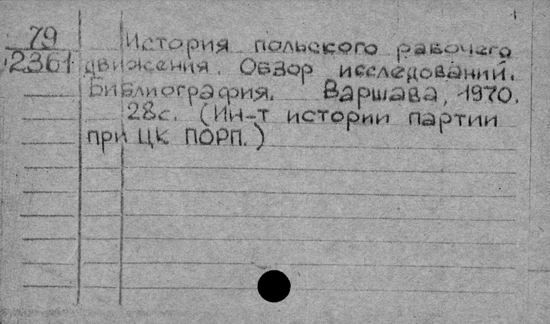 79
2361
История польского рабочего
движения. Обзор исследований.
Библиография. Варшава, 1970.
28с. (Ин-т истории партии
при ЦК ПОРП.)